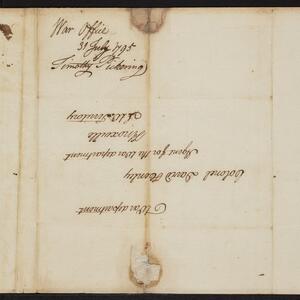 War Office
31 July 1795
Timothy Pickering
War department
Colonel David Henley
Agent for the War department
Knoxville
Territory